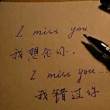 I miss you
我想念你.
I miss you...
我错过你